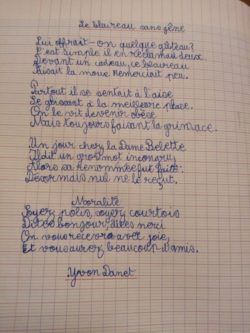 Le blaireau sans gêne
Lui offrait-on quelque gâteau?
C'est simple il en réclamait deux
Devant un cadeau, ce blaireau
Faisait la moue remerciait peu.
Partout il se sentait à l'aise
Se glissant à la meilleure place.
On le vit devenir obèse
Mais toujours faisant la grimace.
Un jour chez la Dame Belette
Il dit un gros mot inconnu,
Alors sa renommée fut faite:
Désormais nul ne le reçut.
Moralité
Soyez polis, soyez courtois
Dites bonjour, dites merci
On vous recevra avec joie,
Et vous aurez beaucoup d'amis.
Yvon Danet